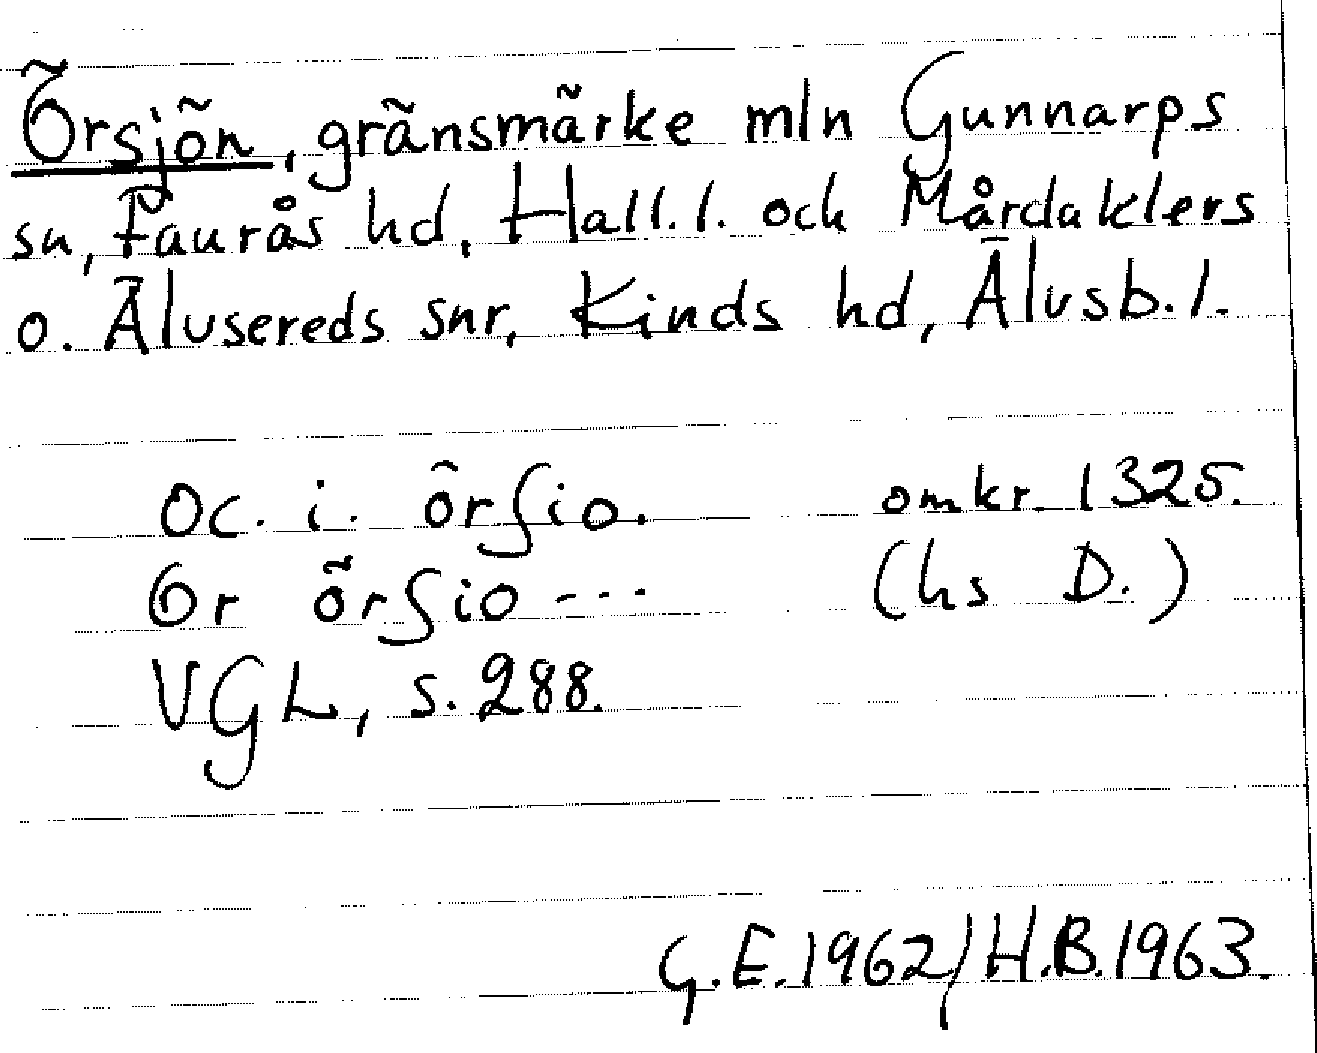 Örsjön, gränsmärke mln Gunnarps
sn, Faurås hd, Hall. l. och Mårdaklers
o. Älvsereds snr, Kinds hd, Älvsb. l.
oc. i. örſio. omkr. 1325.
Or örſio --- (hs D.)
VGL, s. 288.
G.E. 1962/H.B. 1963.